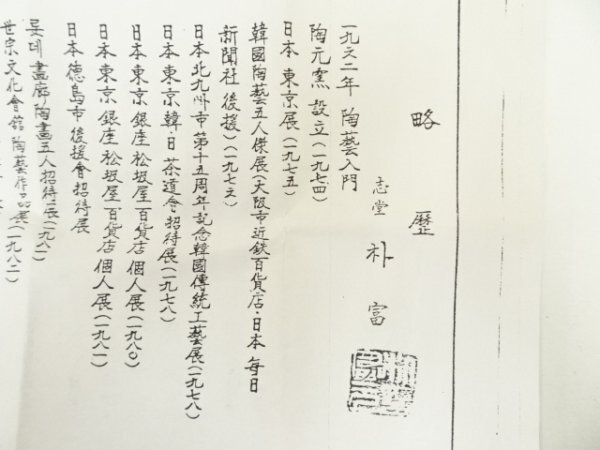 略歴
志堂 朴富
一九六二年 陶藝入門
陶元窯 設立(一九七四)
日本 東京展(一九七五)
韓國陶藝五人傑展(大阪市近鉄百貨店・日本 每日
新聞社 後援)(一九七六)
日本北九州市第十五周年記念韓國傳統工藝展(一九七八)
日本東京韓・日 茶道會招待展(一九七八)
日本東京銀座松坂屋百貨店個人展(一九八〇)
日本東京銀座松坂屋百貨店個人展(一九八一)
日本德島市後援會招待展
롯데畫廊陶畵五人招待展(一九八一)
世宗文化會館陶藝作品展(一九八二)